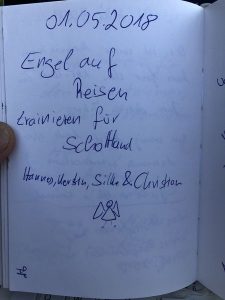 01.05.2018
Engel auf
Reisen
trainieren für
Schottland
Hannes, Kerstin, Silke & Christian